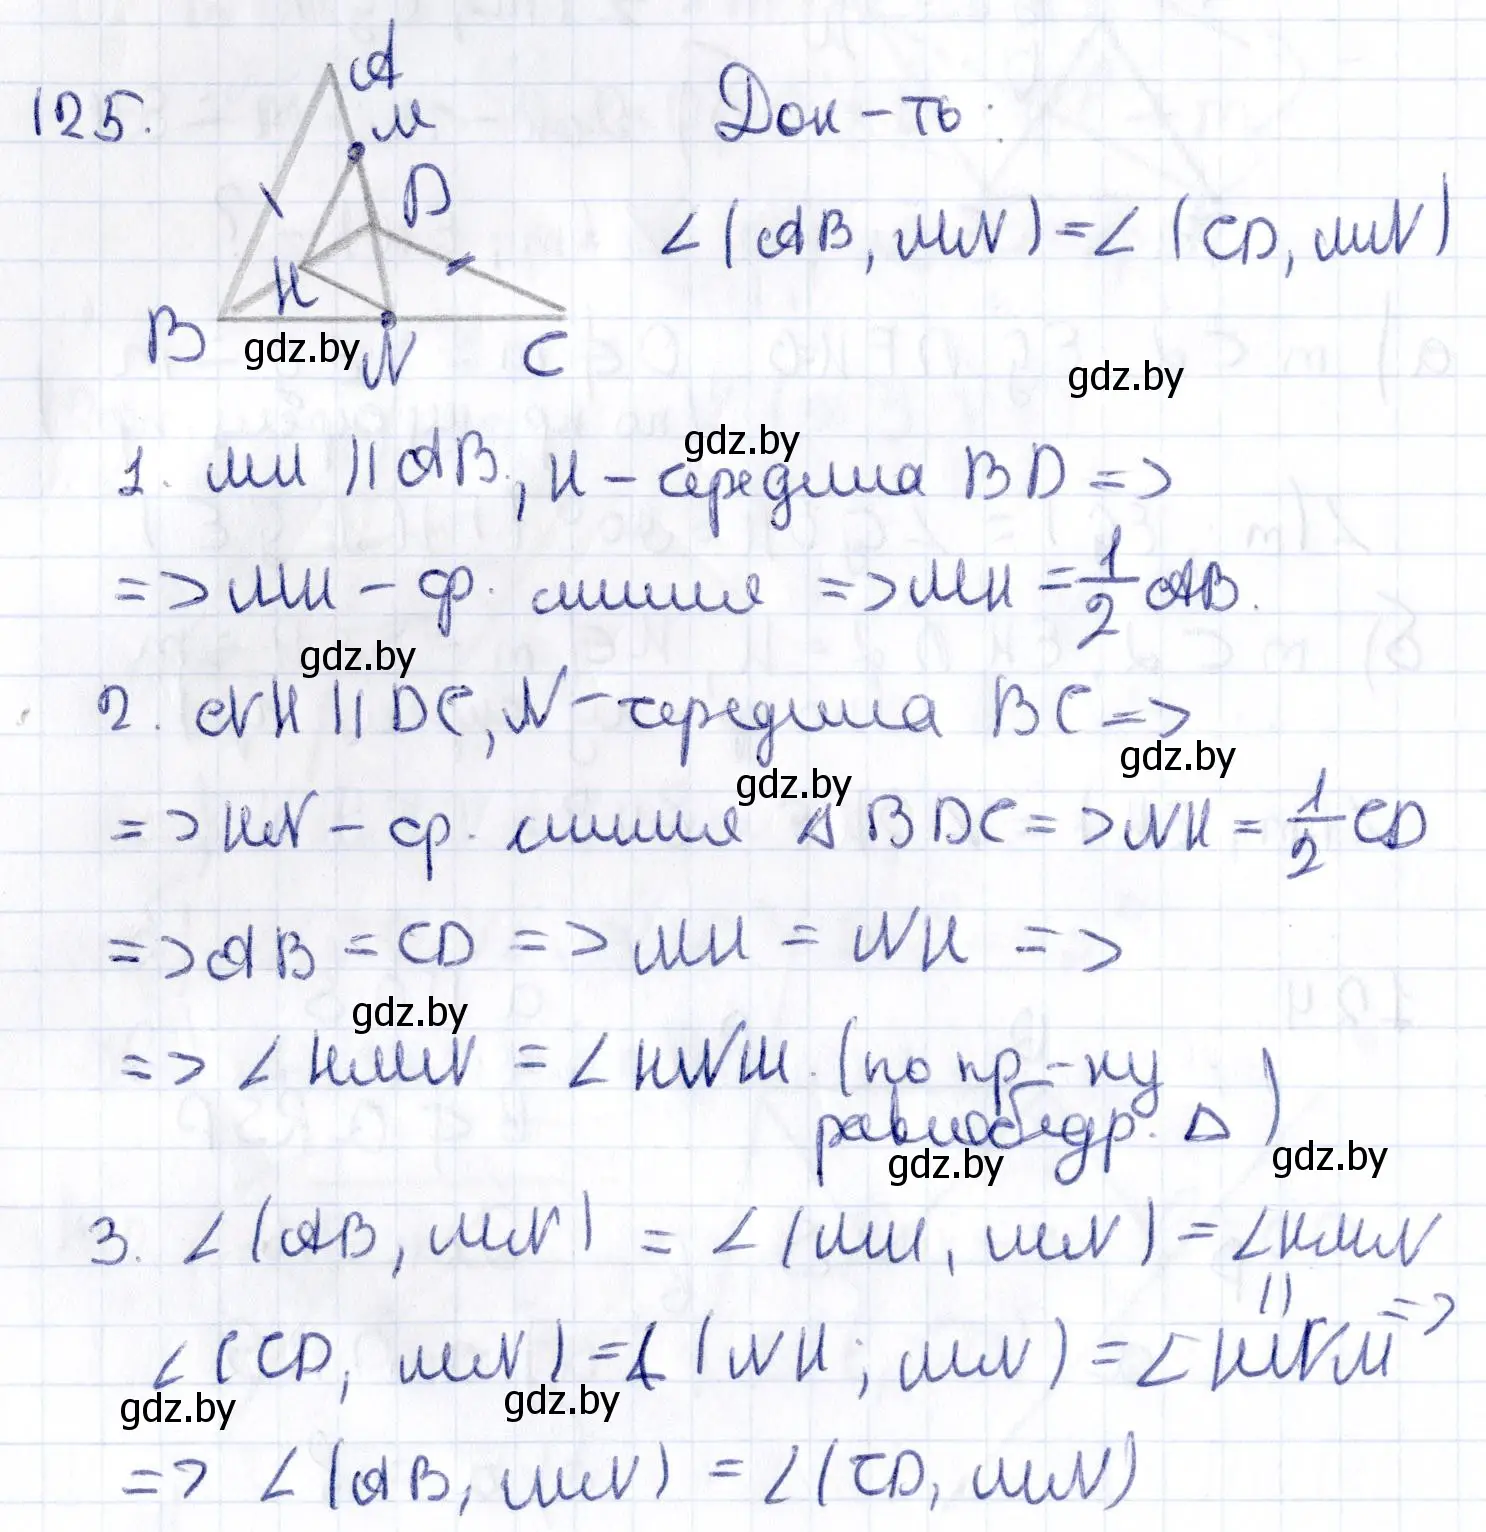 125.
A
M
D
H
B
N
C
Док-ть:
∠(AB, MN) = ∠(CD, MN)
gdz.by
gdz.by
gdz.by
1. MH || AB, H - середина BD =>
=> MH - ср. линия => MH = 1/2 AB.
gdz.by
2. NH || DC, N - середина BC =>
gdz.by
gdz.by
=> HN - ср. линия Δ BDC => NH = 1/2 CD
=> AB = CD => MH = NH =>
gdz.by
=> ∠HMN = ∠HNM. (по пр-ку
равнобедр. Δ)
gdz.by
gdz.by
3. ∠(AB, MN) = ∠(MH, MN) = ∠HMN
||
∠(CD, MN) = ∠(NH; MN) = ∠HNM =>
gdz.by
gdz.by
=> ∠(AB, MN) = ∠(CD, MN)